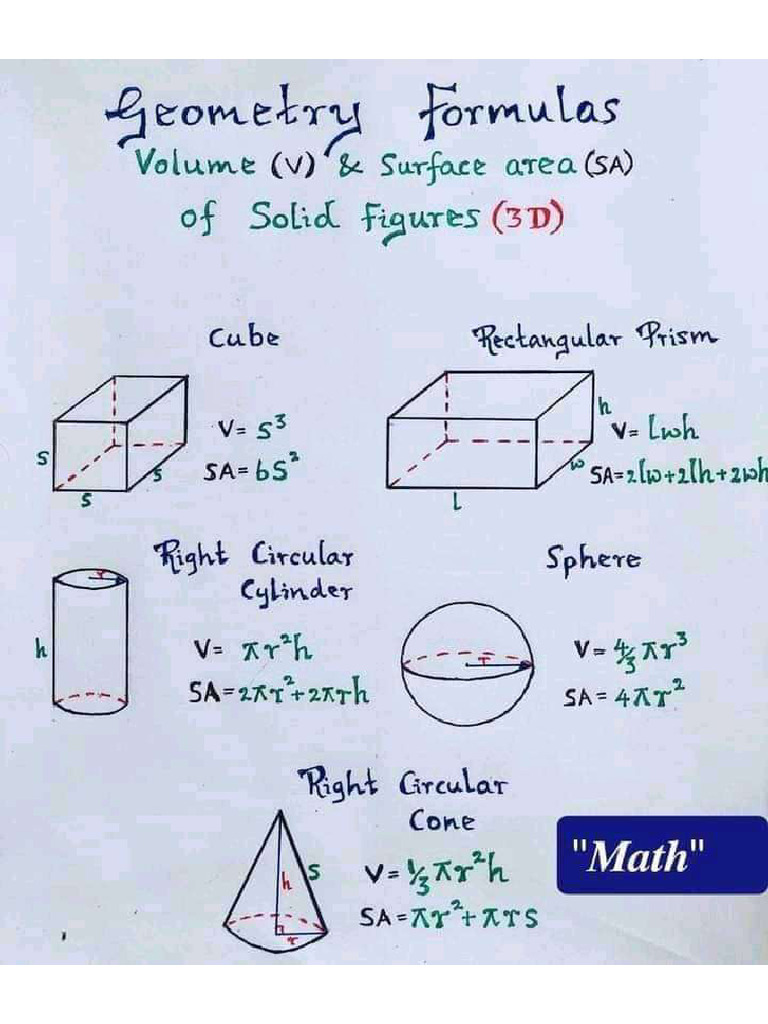 Geometry Formulas
Volume (V) & Surface area (SA)
of Solid Figures (3D)
Cube
s
s
s
V= S³
SA= 6S²
Rectangular Prism
h
w
L
V= Lwh
SA=2lw+2lh+2wh
Right Circular
Cylinder
r
h
V= πr²h
SA=2πr²+2πrh
Sphere
r
V= 4/3 πr³
SA= 4πr²
Right Circular
Cone
h
S
r
V= 1/3 πr²h
SA=πr²+πrs
"Math"